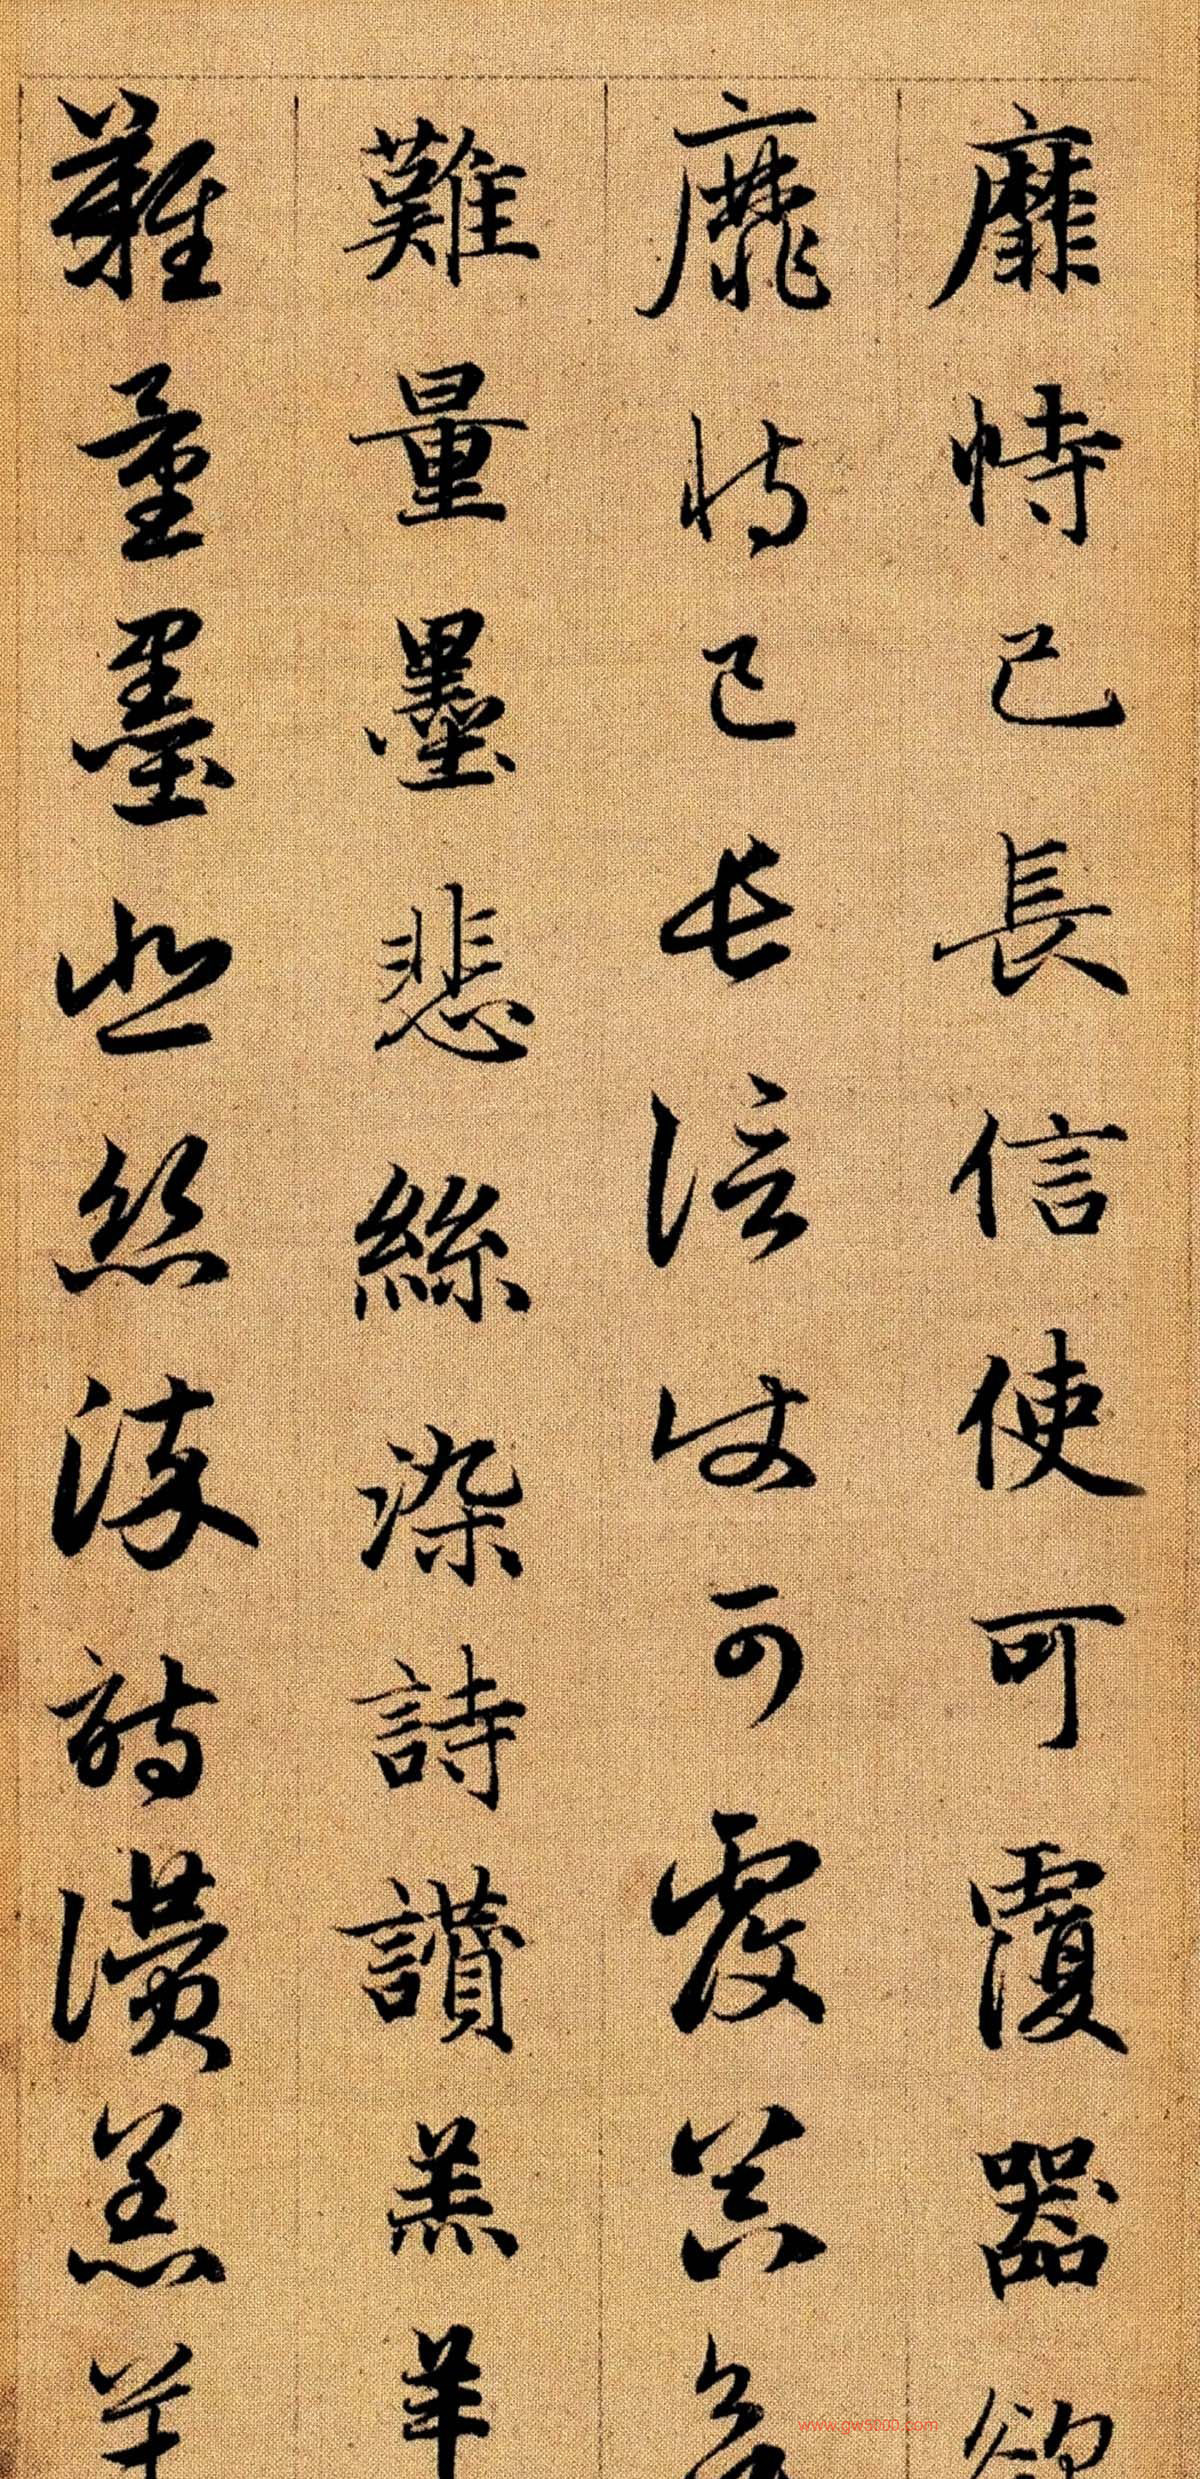 靡恃己長信使可覆器欲
靡恃己長信使可覆器欲
難量墨悲絲染詩讚羔羊
難量墨悲絲染詩讚羔羊
www.gw5000.com